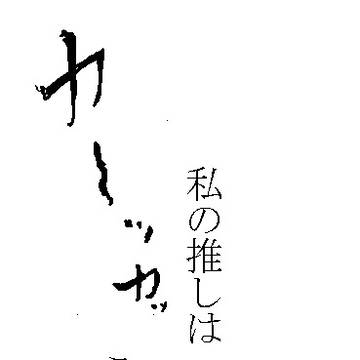 私の推しは
カーッカッ